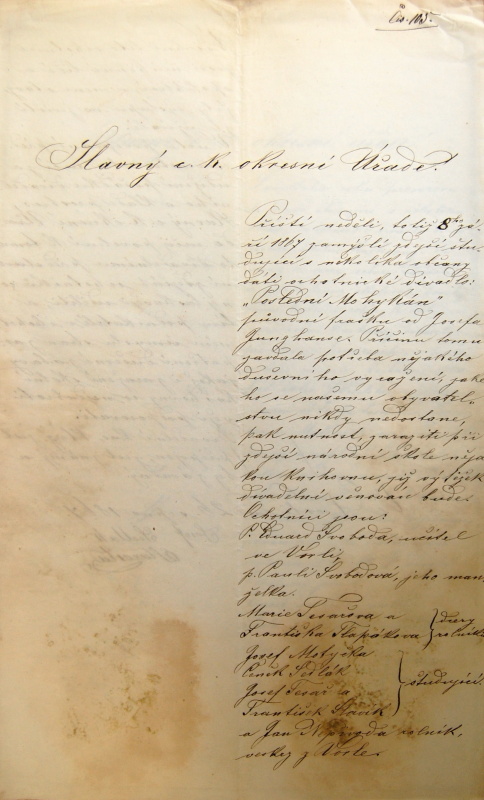 Čís. 105.
Slavný c. k. okresní Úřade!
Příští neděli, totiž 8ho zá-
ří 1867 zamýšlí zdejší stu-
dující s několika občany
dáti ochotnické divadlo:
„Poslední Mohykán"
původní fraška od Josefa
Junghanse. Příčinu tomu
zavdala potřeba nějakého
duševního vyražení, jaké-
ho se našemu obyvatel-
stvu nikdy nedostane,
pak nutnost, zaraziti při
zdejší národní škole něja-
kou knihovnu, jíž výtěžek
divadelní věnován bude.
Ochotníci jsou:
P. Eduard Svoboda, učitel
ve Vorli,
p. Pauli Svobodová, jeho man-
želka.
Marie Tesařova a
Františka Štěpánkova } dcery rolníků
Josef Motyčka
Čeněk Sedlák
Josef Tesař a
František Slavík } studující.
a Jan Náprvoda rolník,
veskez z Vorle.